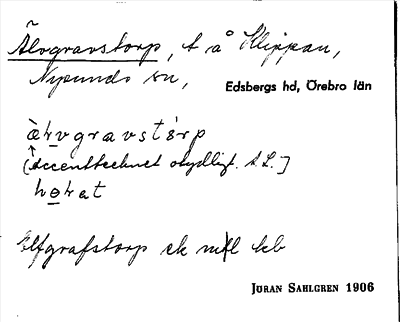 Älvgravstorp, t å Klippan,
Nysunds sn,
Edsbergs hd, Örebro län
àḷvgravstòrp
(Accenttecknet otydligt. A.L.)
hoḷat
Elfgrafstorp ek
JÖRAN SAHLGREN 1906